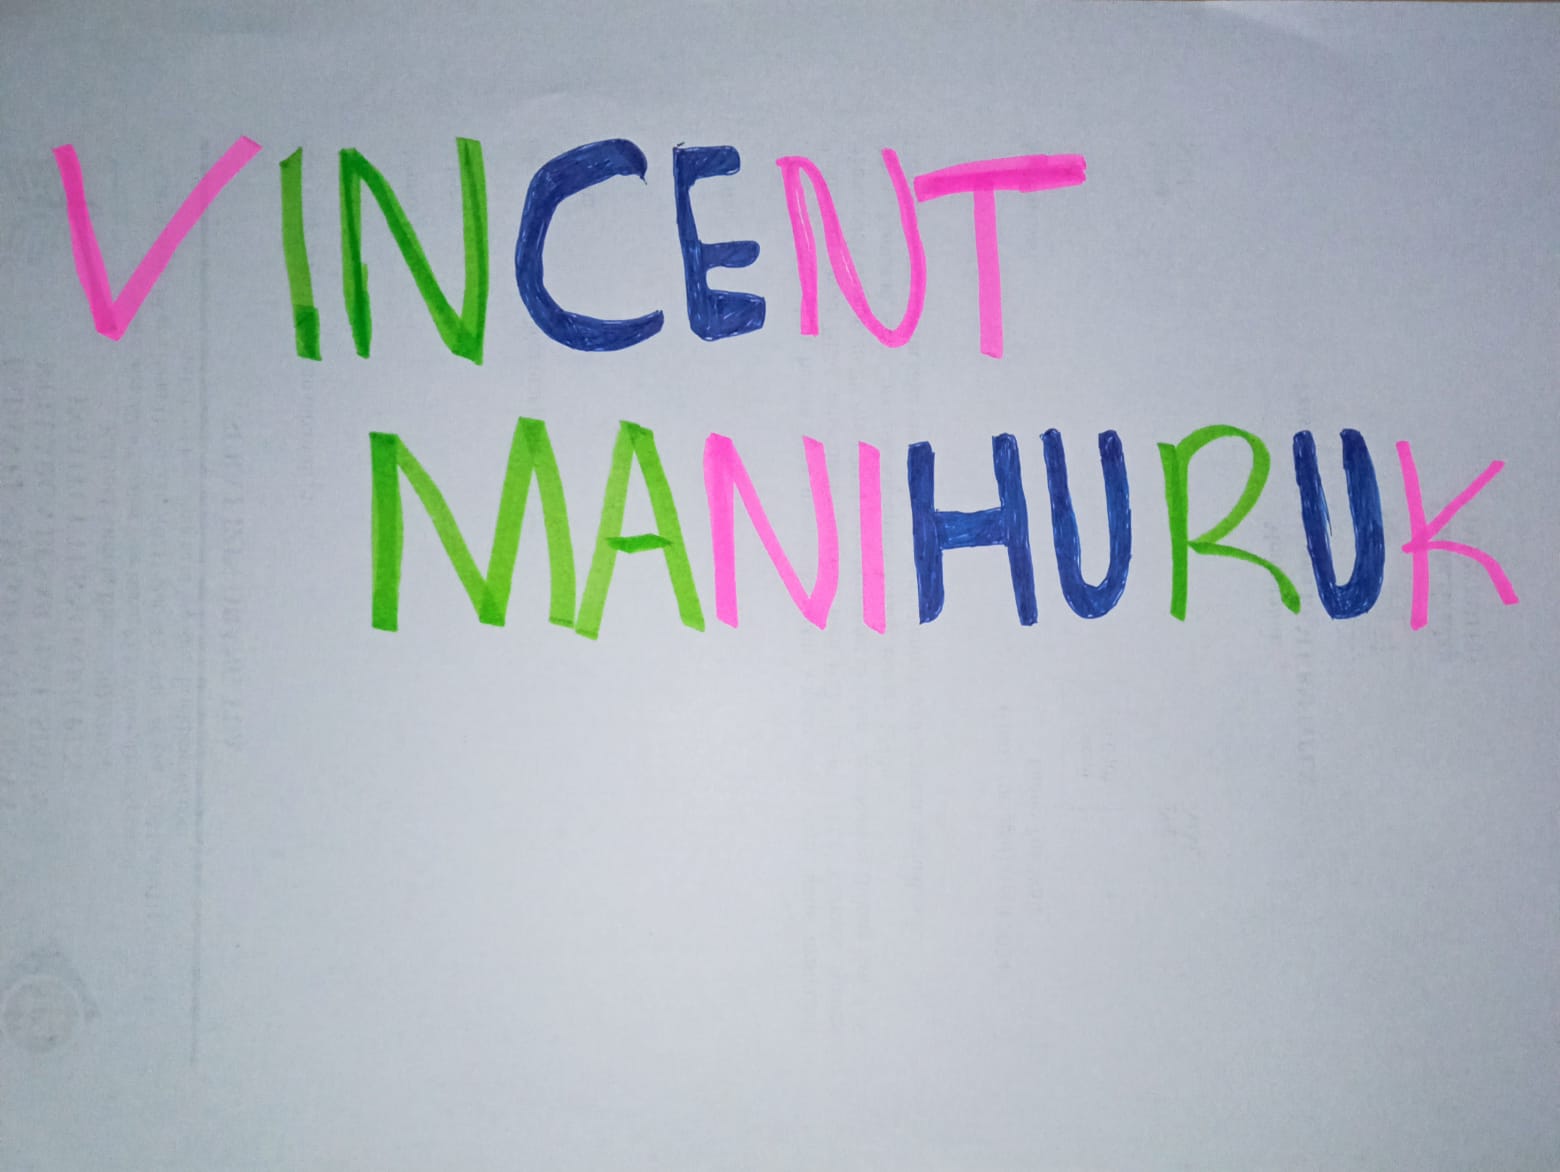 VINCENT
MANIHURUK